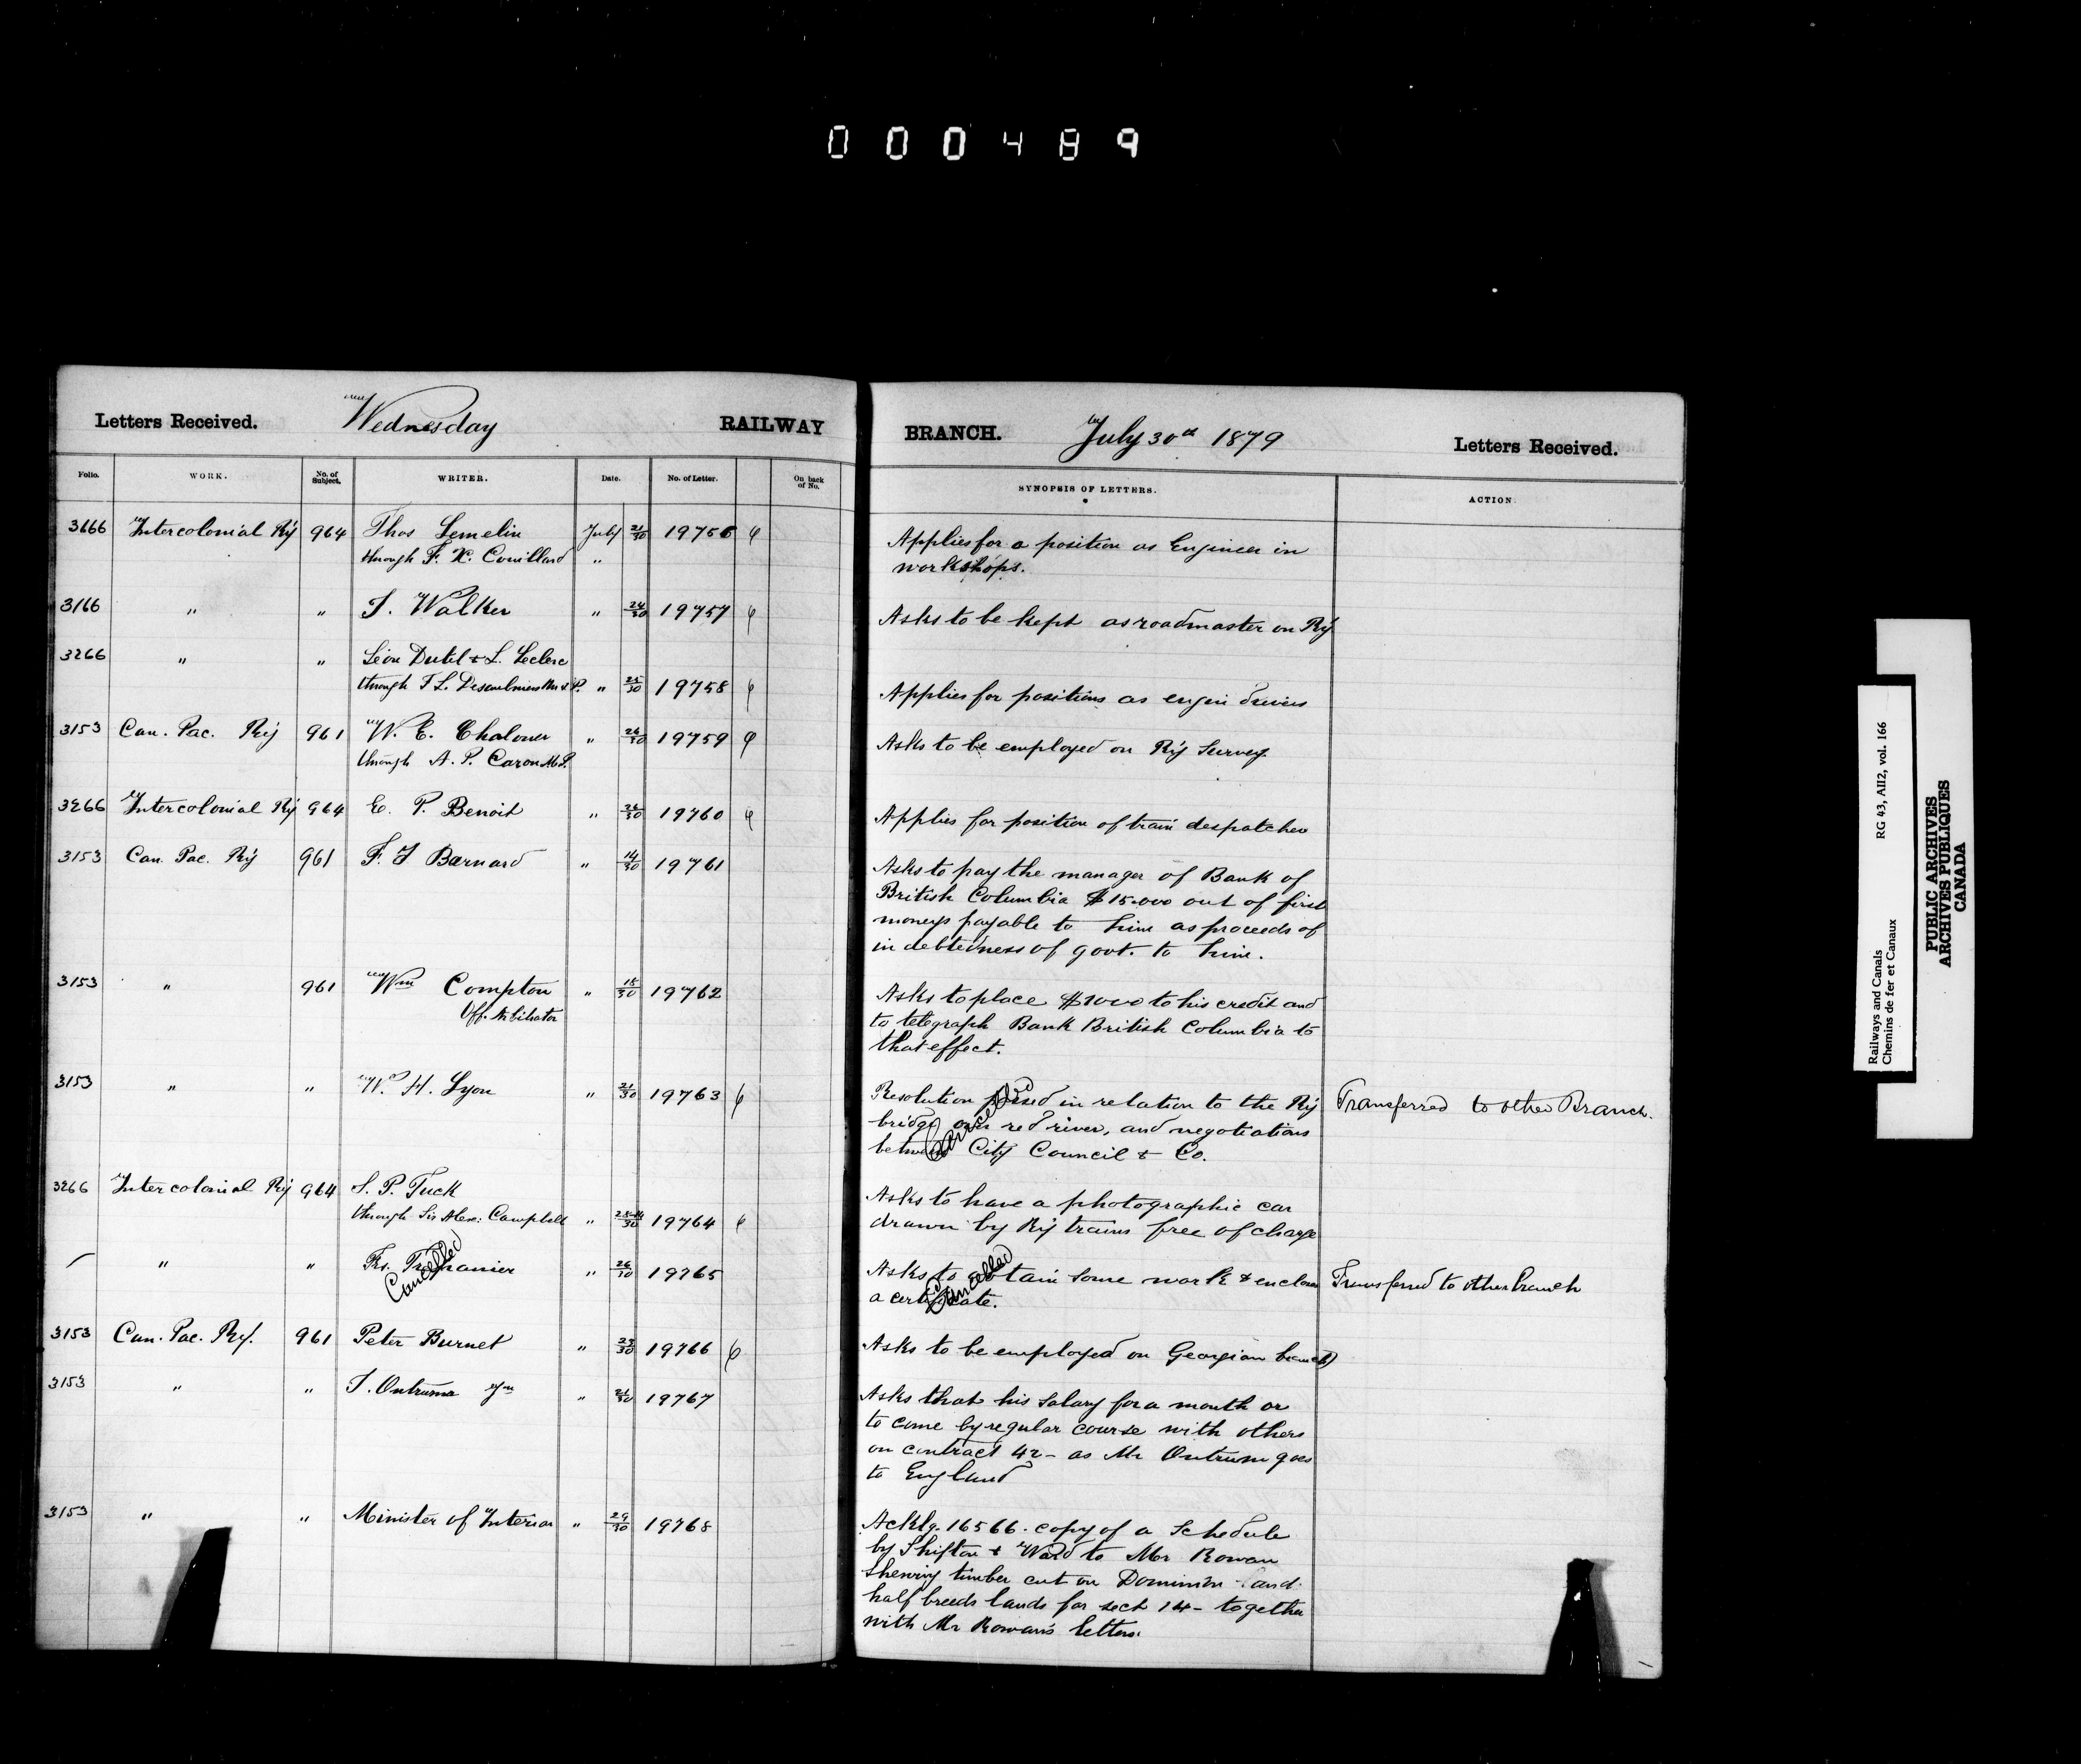 0 0 0 4 8 9
Letters Received. Wednesday RAILWAY BRANCH. July 30th 1879 Letters Received.
Folio. WORK. No. of Subject. WRITER. Date. No. of Letter. On back of No. SYNOPSIS OF LETTERS. ACTION.
3666 Intercolonial Ry 964 Thos Lemelin July 21/30 19756 Applies for a position as Engineer in
through F. X. Couillard " workshops.
3166 " " T. Walker " 24/30 19757 Asks to be kept as roadmaster on Ry
3266 " " Léon Dutil & L. Leclerc
through F L. " 25/30 19758 Applies for positions as engin drivers
3153 Can. Pac. Ry 961 W. E. Chaloner " 26/30 19759 Asks to be employed on Ry Survey.
through A. P. Caron M.P.
3266 Intercolonial Ry 964 E. P. Benoit " 26/30 19760 Applies for position of train despatcher
3153 Can. Pac. Ry 961 F. J Barnard " 14/30 19761 Asks to pay the manager of Bank of
British Columbia $15.000 out of first
moneys payable to him as proceeds of
indebtedness of govt. to him.
3153 " 961 Wm Compton " 15/30 19762 Asks to place $1000 to his credit and
Off. Arbitrator to telegraph Bank British Columbia to
that effect.
3153 " " W. H. Lyon " 21/30 19763 Resolution passed in relation to the Ry Transferred to other Branch.
bridge over red river, and negotiations
between City Council & Co.
Cancelled
3266 Intercolonial Ry 964 S. P. Tuck Asks to have a photographic car
through Sir Alex: Campbell " 19764 drawn by Ry trains free of charge
" " Frs. " 26/30 19765 Asks to obtain some work & encloses Transferred to other branch
Cancelled a certificate.
Cancelled
3153 Can. Pac. Ry. 961 Peter Burnet " 23/30 19766 Asks to be employed on Georgian branch
3153 " " " 21/30 19767 Asks that his salary for a month or
to come by regular course with others
on contract 42- as Mr Outrum goes
to England
3153 " " Minister of Interior " 29/30 19768 Acklg. 16566. copy of a Schedule
by Shifton & Ward to Mr Rowan
shewing timber cut on Dominion and
half breeds lands for sect 14- together
with Mr Rowan's letters.
Railways and Canals RG 43, AII2, vol. 166
Chemins de fer et Canaux
PUBLIC ARCHIVES
ARCHIVES PUBLIQUES
CANADA